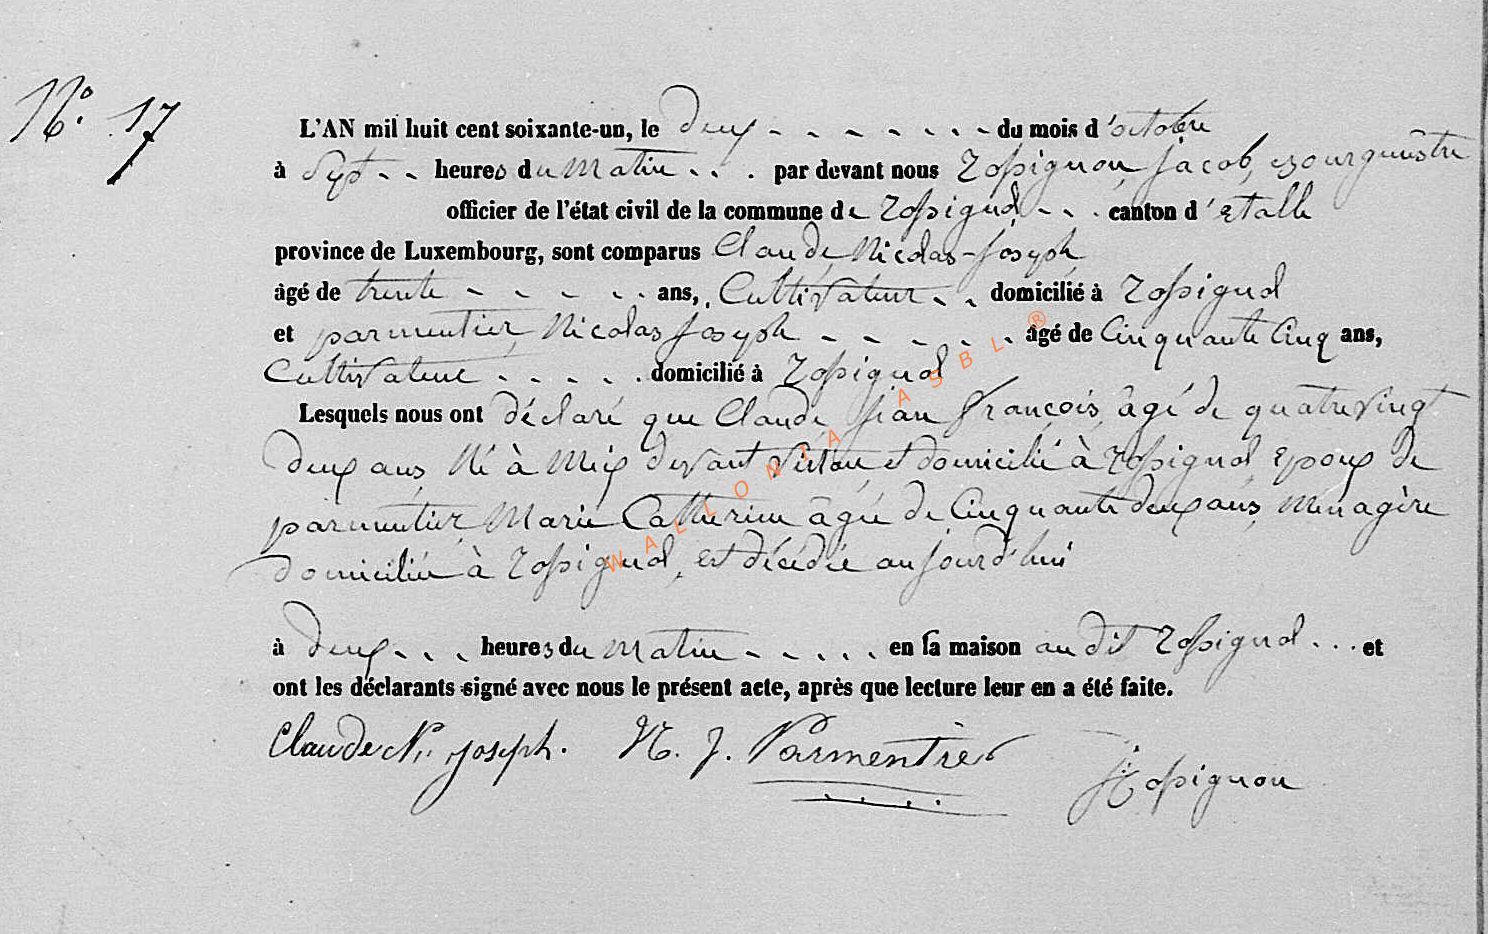 N.° 17
L'AN mil huit cent soixante-un, le deux - - - - - - - du mois d'octobre
à sept - - heures du matin - - - par devant nous Rossignon, Jacob, Bourguestre
officier de l'état civil de la commune de Rossignol - - - canton d'Etalle
province de Luxembourg, sont comparus Claude Nicolas-Joseph
âgé de trente - - - - - ans, Cultivateur - - domicilié à Rossignol
et parmentier, Nicolas Joseph - - - - - - âgé de Cinquante Cinq ans,
Cultivateur - - - - - domicilié à Rossignol
Lesquels nous ont déclaré que Claude Jean François, âgé de quatre vingt
deux ans, Né à Meix devant Virton, et domicilié à Rossignol Epoux de
parmentier, Marie Catherine âgée de Cinquante deux ans, Menagère
domiciliée à Rossignol, est décédée aujourd'hui
à deux - - - heures du matin - - - - - en sa maison au dit Rossignol - - - et
ont les déclarants signé avec nous le présent acte, après que lecture leur en a été faite.
Claude N. Joseph. N. J. Parmentier Rossignon
WALLONIA ASBL ®